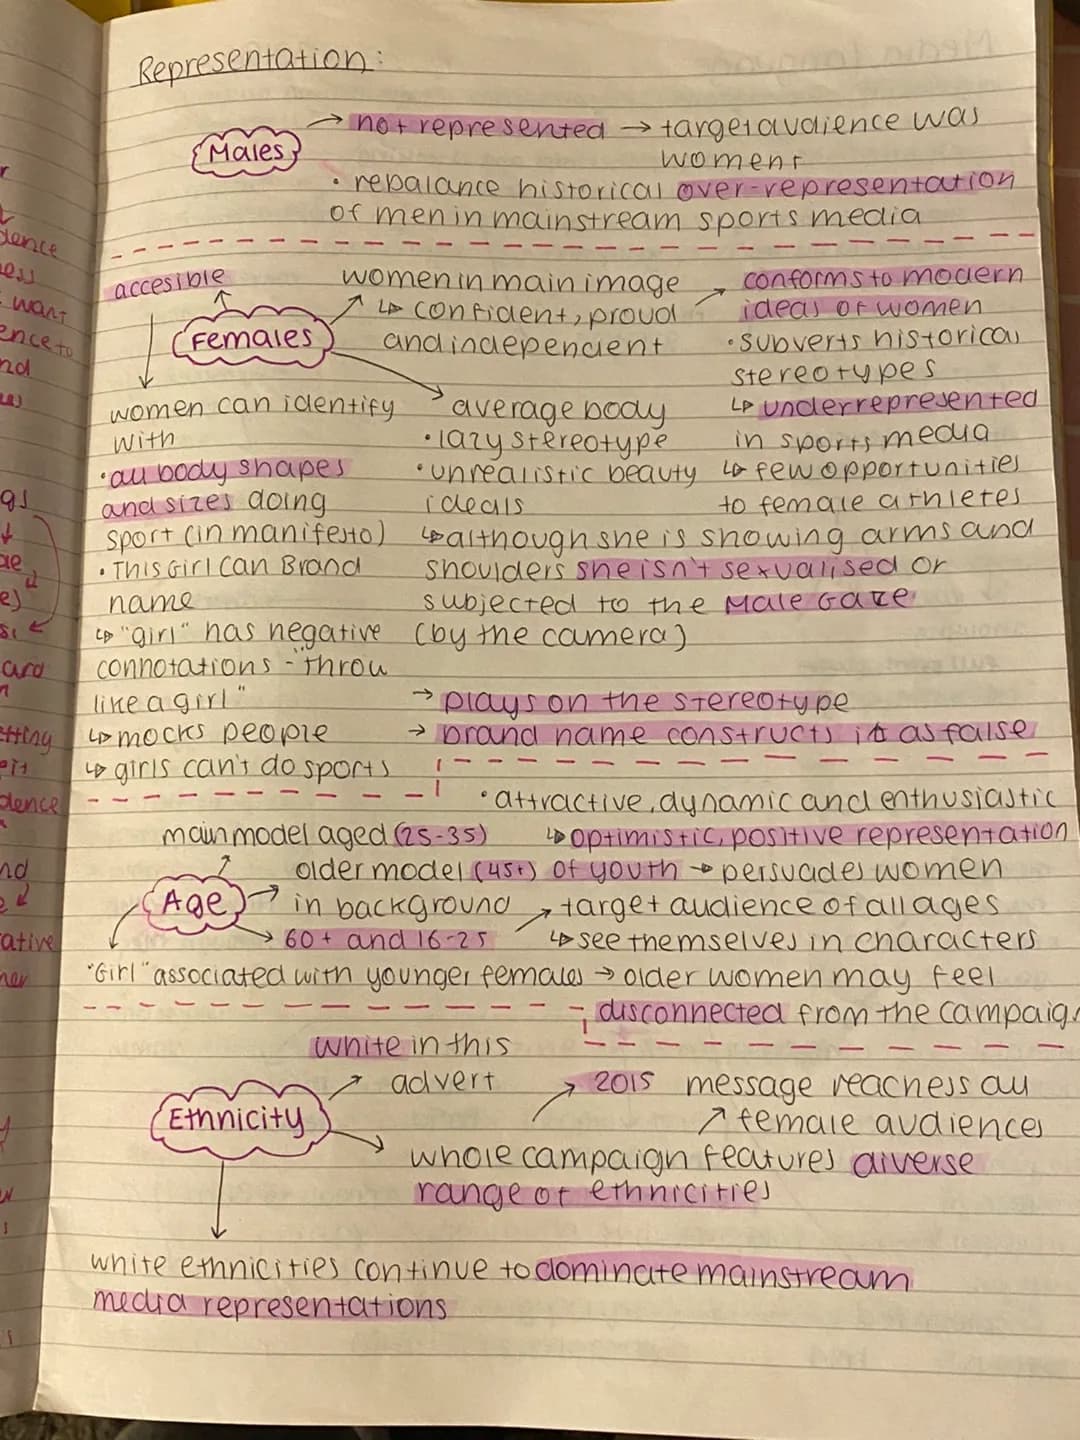 Representation:
Males
→ not represented → target audience was
women
• rebalance historical over-representation
of men in mainstream sports media
accesible
Females
women in main image
↳ confident, proud
and independent
→ conforms to modern
ideas of women
• subverts historical
stereotypes
↳ underrepresented
in sports media
↳ few opportunities
to female athletes
women can identify
with
• all body shapes
and sizes doing
sport (in manifesto)
• This Girl Can Brand
name
↳ "girl" has negative
connotations - "throw
like a girl"
↳ mocks people
↳ girls can't do sports
average body
• lazy stereotype
• unrealistic beauty
ideals
↳ although she is showing arms and
shoulders she isn't sexualised or
subjected to the Male Gaze
(by the camera)
→ plays on the stereotype
→ brand name constructs it as false
Age
main model aged (25-35)
older model (45+)
in background
→ 60+ and 16-25
• attractive, dynamic and enthusiastic
↳ optimistic, positive representation
of youth → persuades women
→ target audience of all ages
↳ see themselves in characters
"Girl" associated with younger females → older women may feel
disconnected from the campaign
Ethnicity
white in this
advert
→ 2015
message reachess all
↗ female audiences
whole campaign features diverse
range of ethnicities
white ethnicities continue to dominate mainstream
media representations
dence
ess
want
ence to
nd
gs
ard
etting
eit
dence
nd
ative
her